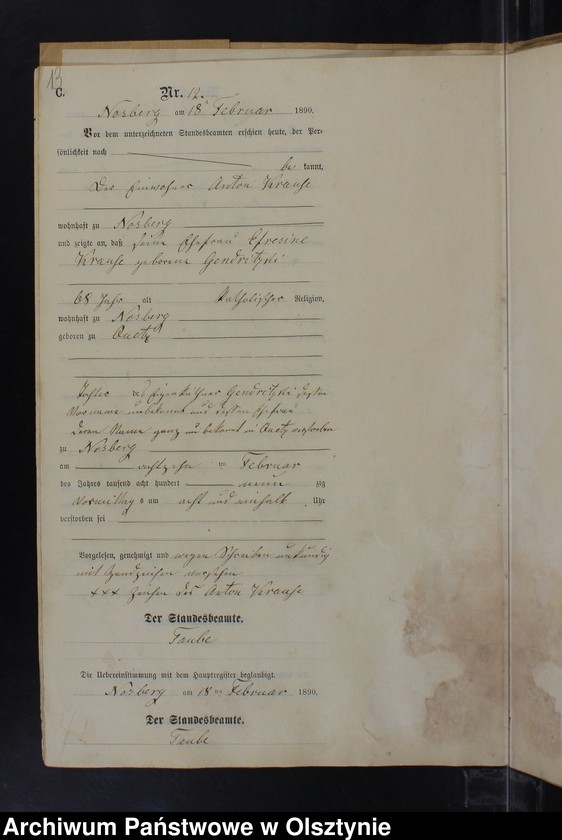 13
C.
Nr. 12.
Nosberg am 18 Februar 1890.
Vor dem unterzeichneten Standesbeamten erschien heute, der Per-
sönlichkeit nach
be kannt,
Der Einwohner Anton Krause
wohnhaft zu Nosberg
und zeigte an, daß seine Ehefrau Efresine
Krause geborene Gendritzki
68 Jahr alt Katholischer Religion,
wohnhaft zu Nosberg
geboren zu Queetz
Tochter des Eigenkäthners Gendritzki dessen
Vorname unbekannt und dessen Ehefrau
deren Name ganz unbekannt in Queetz verstorben
zu Nosberg
am achtzehn ten Februar
des Jahres tausend acht hundert neun zig
Vormittag s um acht und einhalb Uhr
verstorben sei
Vorgelesen, genehmigt und wegen Schreiben unkundig
mit Handzeichen versehen
+++ Zeichen des Anton Krause
Der Standesbeamte.
Taube
Die Uebereinstimmung mit dem Hauptregister beglaubigt.
Nosberg am 18 ten Februar 1890.
Der Standesbeamte.
Taube
Archiwum Państwowe w Olsztynie